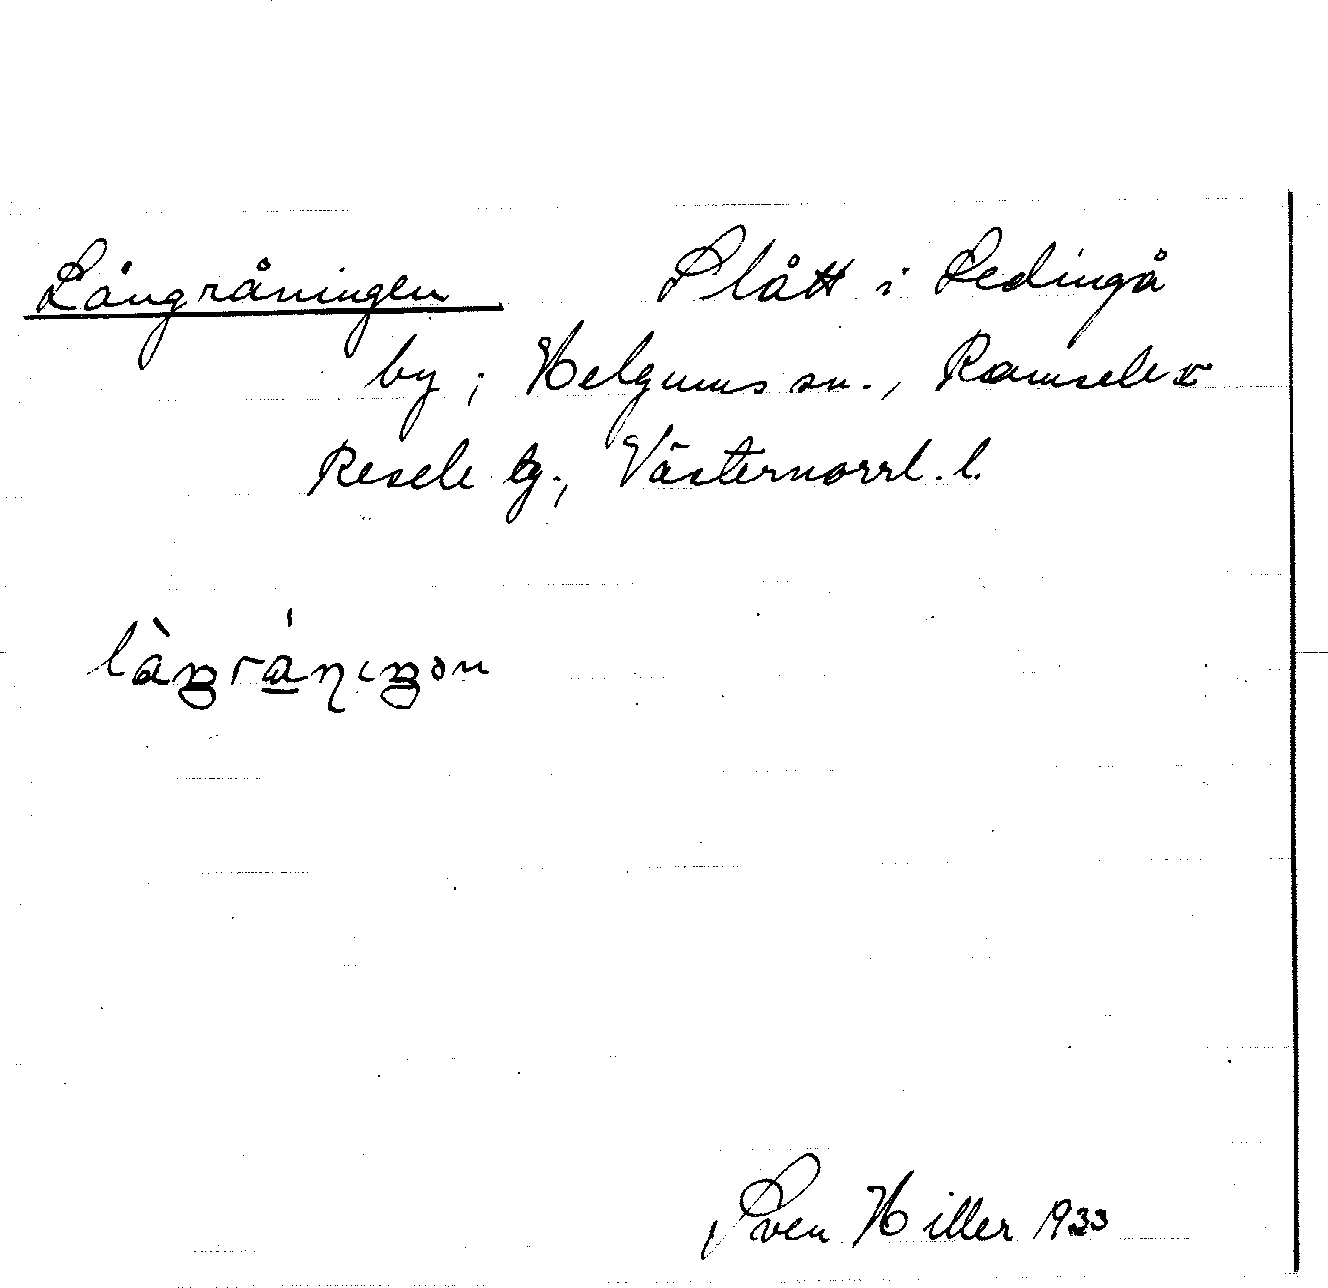 Långråningen Slått i Ledingå
by i Helgums sn., Ramsele o
Resele tg., Västernorrl. l.
làŋrǻṇıŋən
Sven Hiller 1933